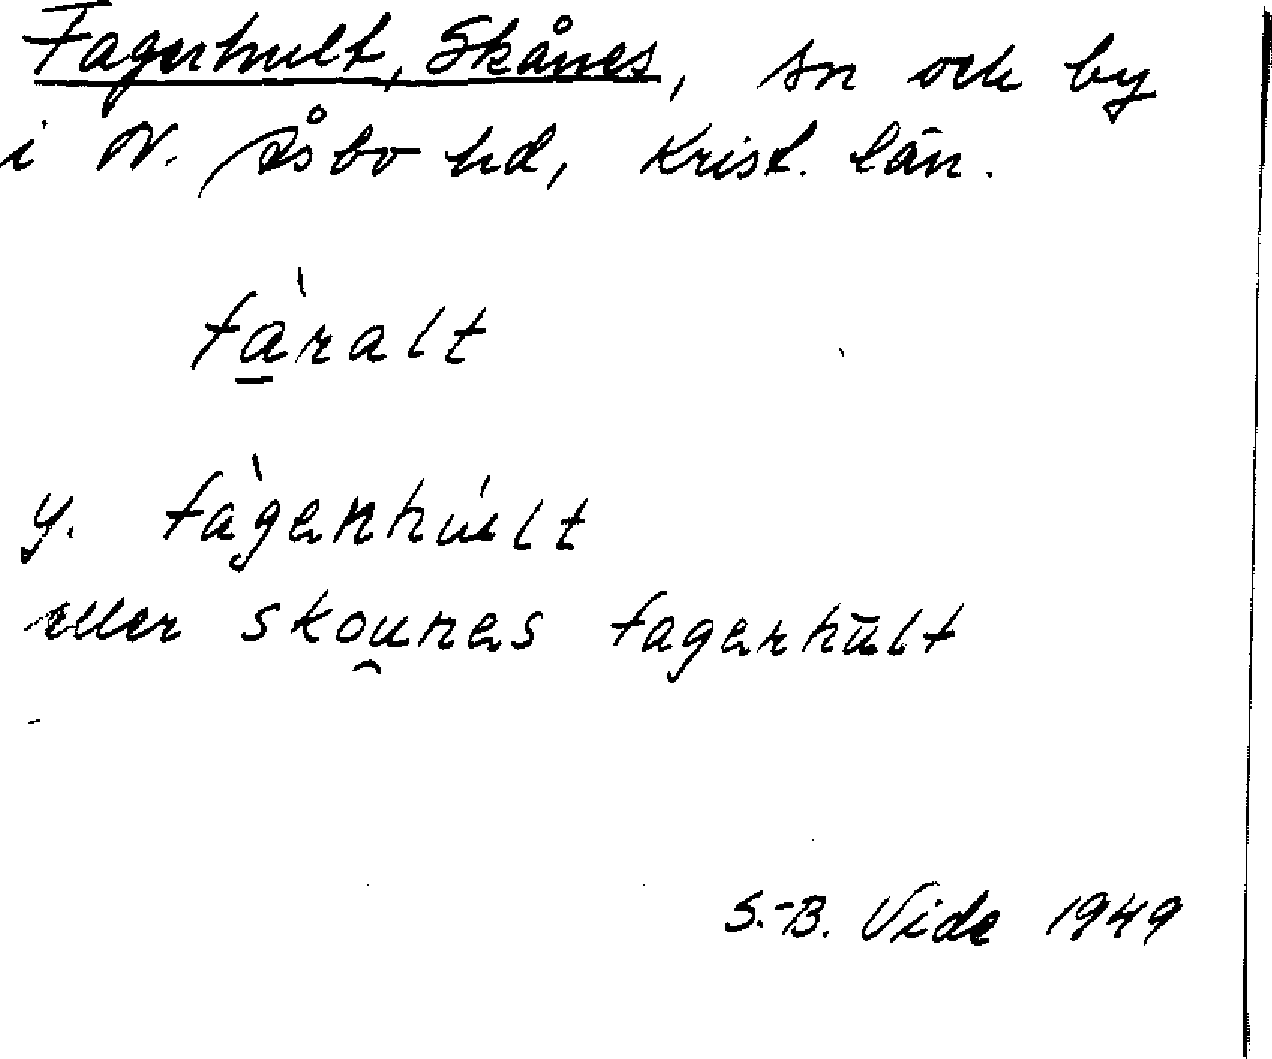 Fagerhult, Skånes, sn och by
i N. Åsbo hd, Krist. län.
fà̲ralt
y. fàgerhu̍lt
eller skou̯nes fagerhūlt
S.-B. Vide 1949